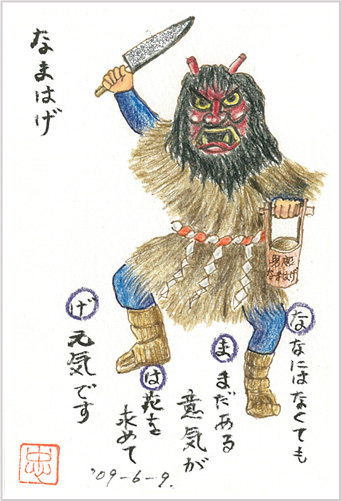 なまはげ
な なにはなくても
ま まだある
意気が
は 花を
求めて
げ 元気です
'09-6-9.
忠
なまはげ